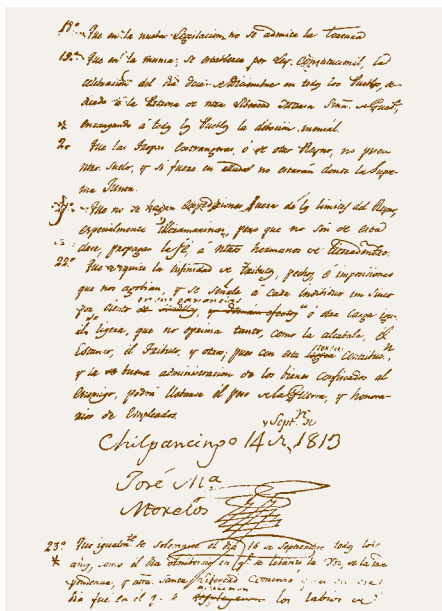 18.° Que en la nueva Legislacion no se admita la Tortura
19.° Que en la misma, se establezca por Ley Constitucional la
celebracion del dia doce de Diciembre en todos los Pueblos, de-
dicado á la Patrona de ntra Libertad Maria Sma. de Guade,
encargando á todos los Pueblos la devocion mensal.
20 Que las tropas extrangeras, ó de otro Reyno, no pisen
ntro. suelo, y si fuere en ayuda no estaran donde la Supre-
ma Junta.
21.° Que no se hagan Espediciones fuera de los limites del Reyno,
especialmente Ultramarinas, pero que no son de esta
clase, propagar la fé, á ntros hermanos de tierradentro.
22.° Que se quite la infinidad de tributos, pechos, é imposiciones
que nos agobian, y se señale á cada individuo un cinco
en sus ganancias
por ciento de semillas, y demas efectos ú otra carga igu-
al ligera, que no oprima tanto, como la alcabala, el
Estanco, el Tributo, y otros; pues con esta contribucn
y la buena administracion de los bienes confiscados al
Enemigo, podrá llevarse el peso de la Guerra, y honora-
rios de Empleados.
Septre
Chilpancingo 14 de 1813
José Ma
Morelos
23.° Que igualmte se solemnice el dia 16 de Septiembre todos los
años, como el dia Aniversario en qe se levantó la Voz de la Inde-
pendencia, y ntra Santa Libertad Comenzó pues en ese
dia fue en el q. se los labios de